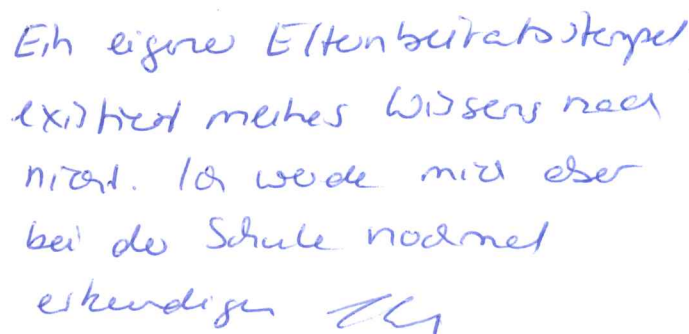 Ein eigener Elternbeiratsstempel
existiert meines Wissens nach
nicht. Ich werde mich aber
bei der Schule nochmal
erkundigen